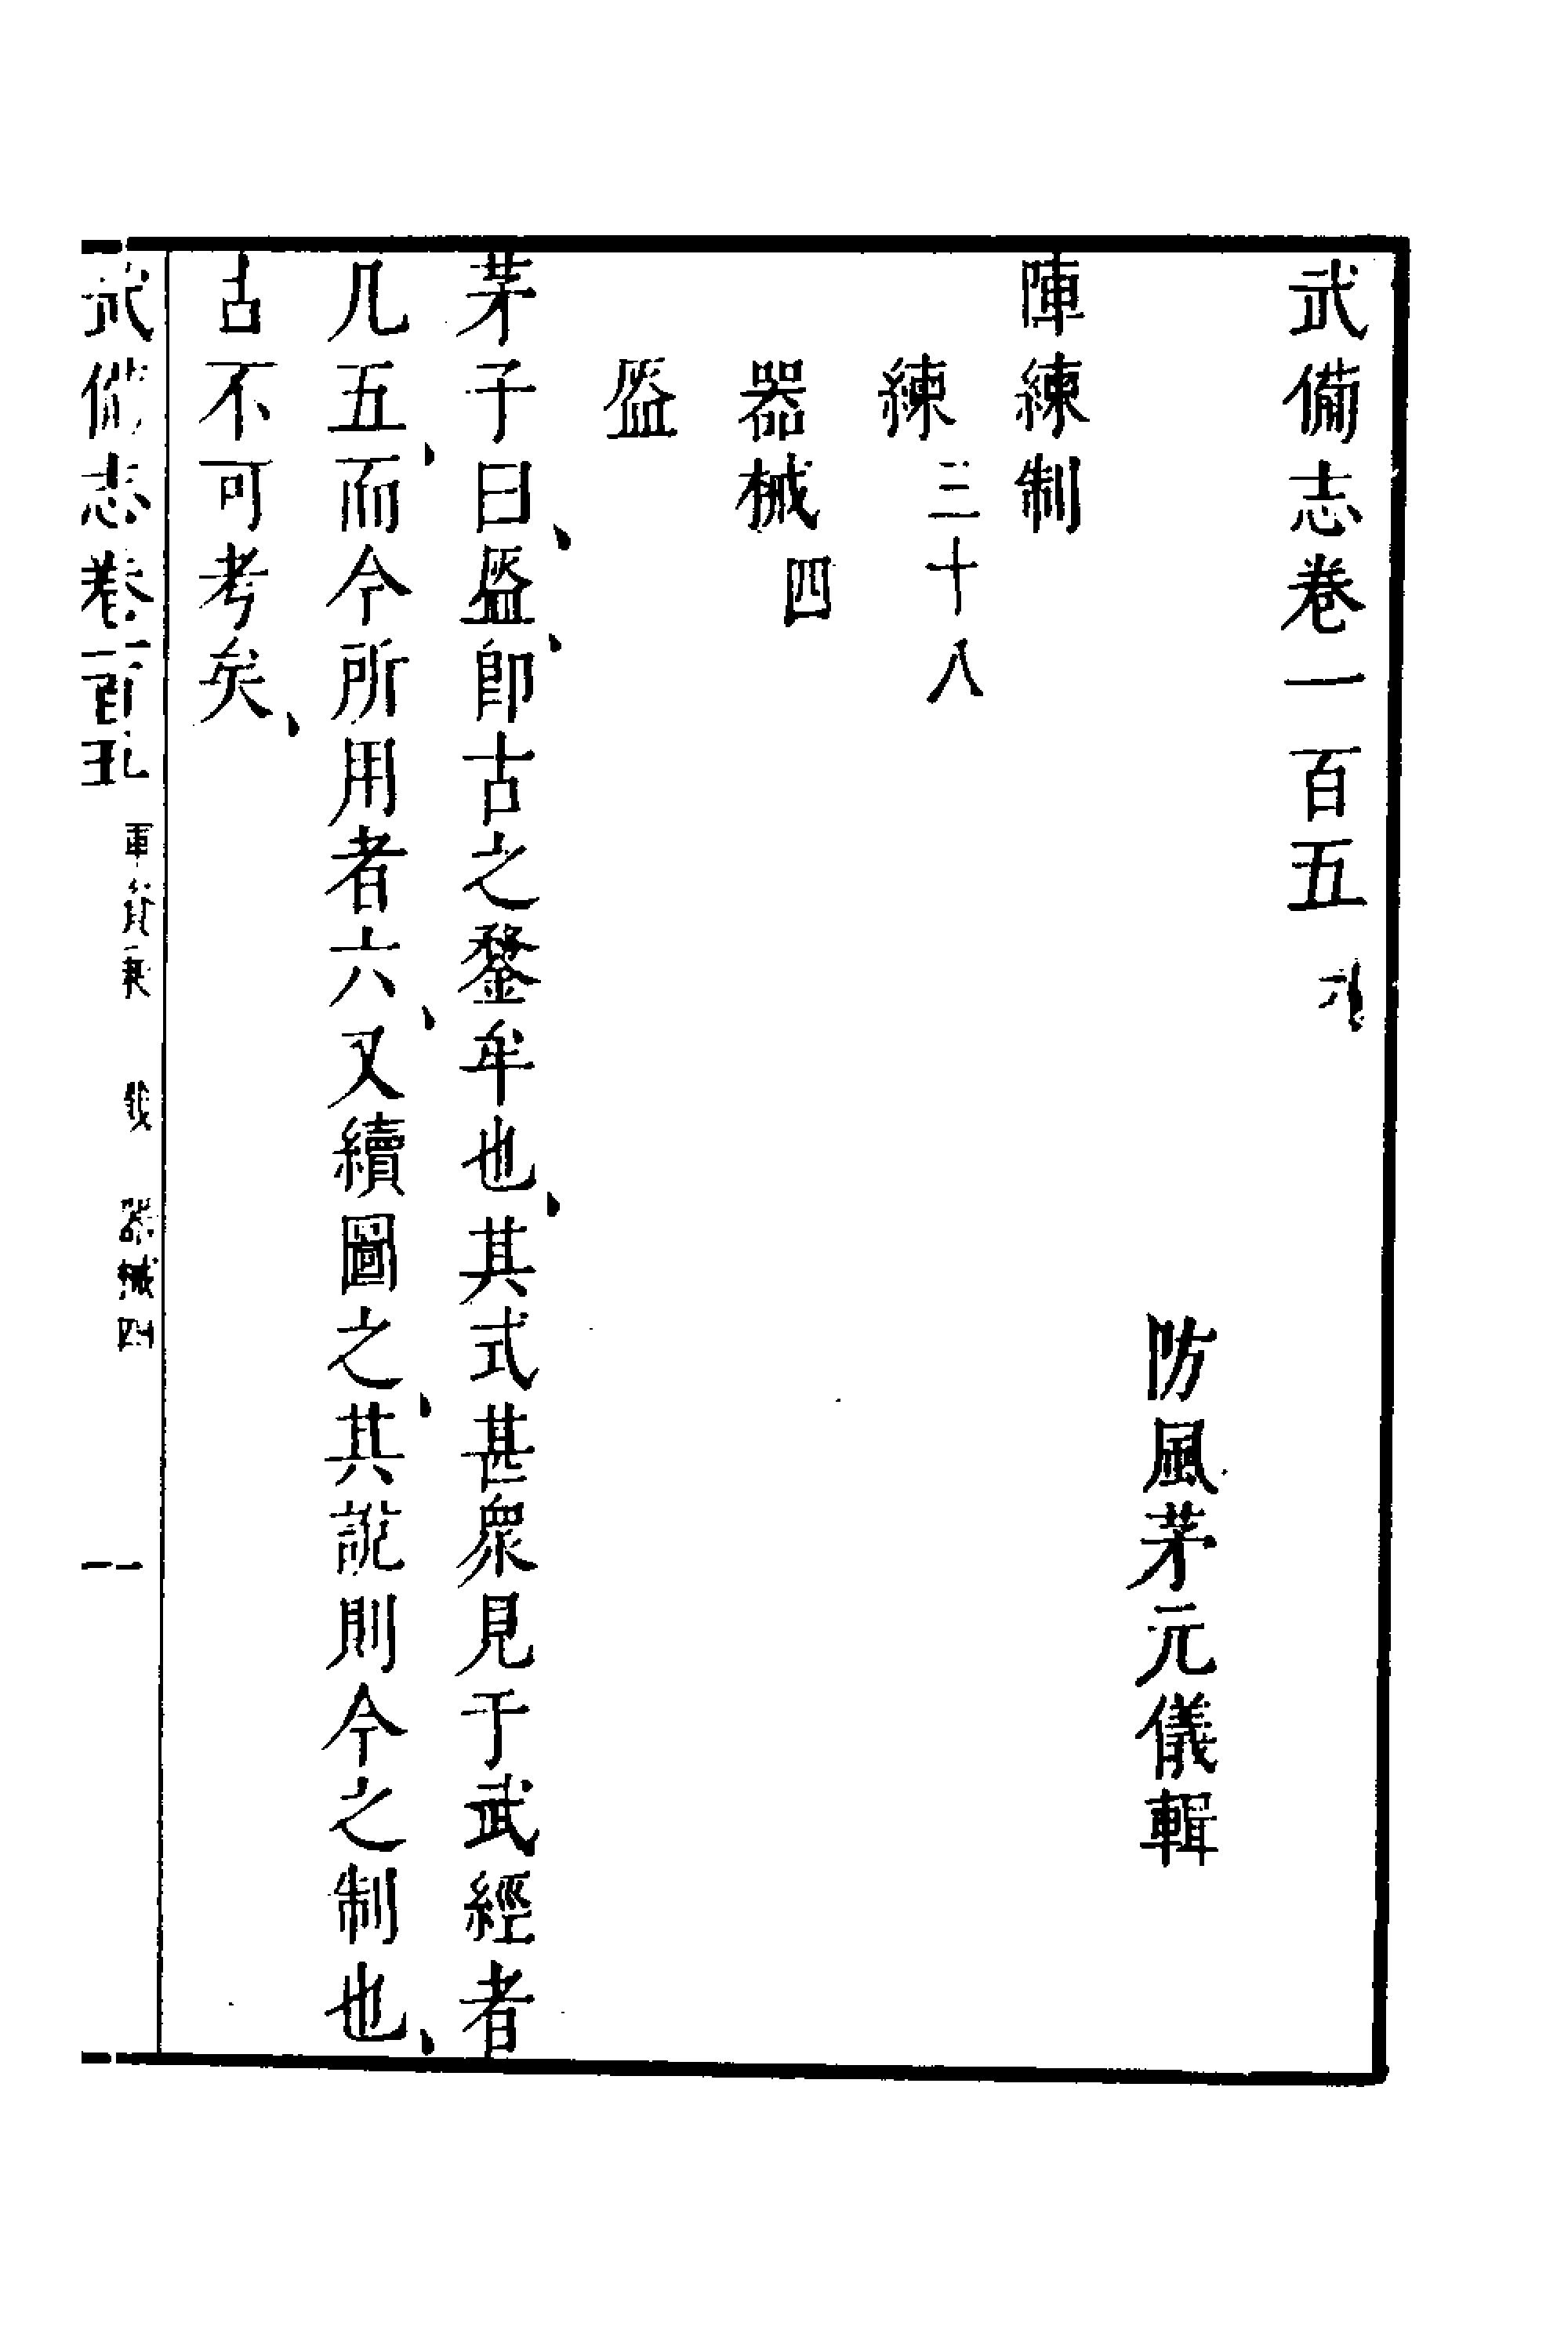 武備志卷一百五
防風茅元儀輯
陣練制
練三十八
器械四
盔
茅子曰盔卽古之鍪牟也其式甚衆見于武經者
凡五而今所用者六又續圖之其說則今之制也
古不可考矣
武備志卷一百五 器械四 一